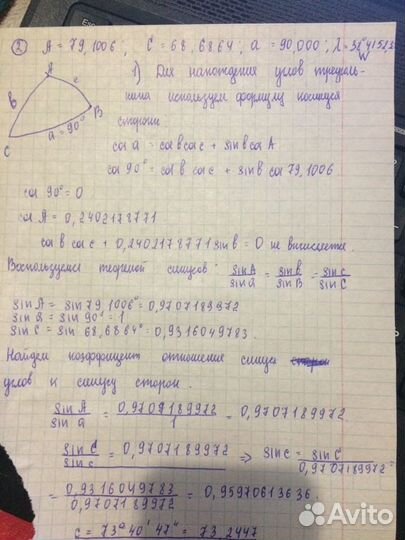 ② A = 79,1006, C = 68,6864, a = 90,000
1) Для нахождения углов треуголь-
ника используем формулу косинуса
стороны
A
в
c
B
a = 90°
C
cos a = cos b cos c + sin b cos A
cos 90° = cos b cos c + sin b cos 79,1006
cos 90° = 0
cos A = 0,2402178771
cos b cos c + 0,2402178771 sin b = 0 не вычисляется.
Воспользуемся теоремой синусов: sin A / sin a = sin b / sin B = sin c / sin C
sin A = sin 79,1006° = 0,9707189972
sin a = sin 90° = 1
sin C = sin 68,6864° = 0,9316049783.
Найдем коэффициент отношения синуса
углов к синусу сторон.
sin A / sin a = 0,9707189972 / 1 = 0,9707189972
sin C / sin c = 0,9707189972 ⇒ sin c = sin C / 0,9707189972 =
= 0,9316049783 / 0,9707189972 = 0,9597061363 6.
c = 73° 40' 47" = 73,2447
Avito